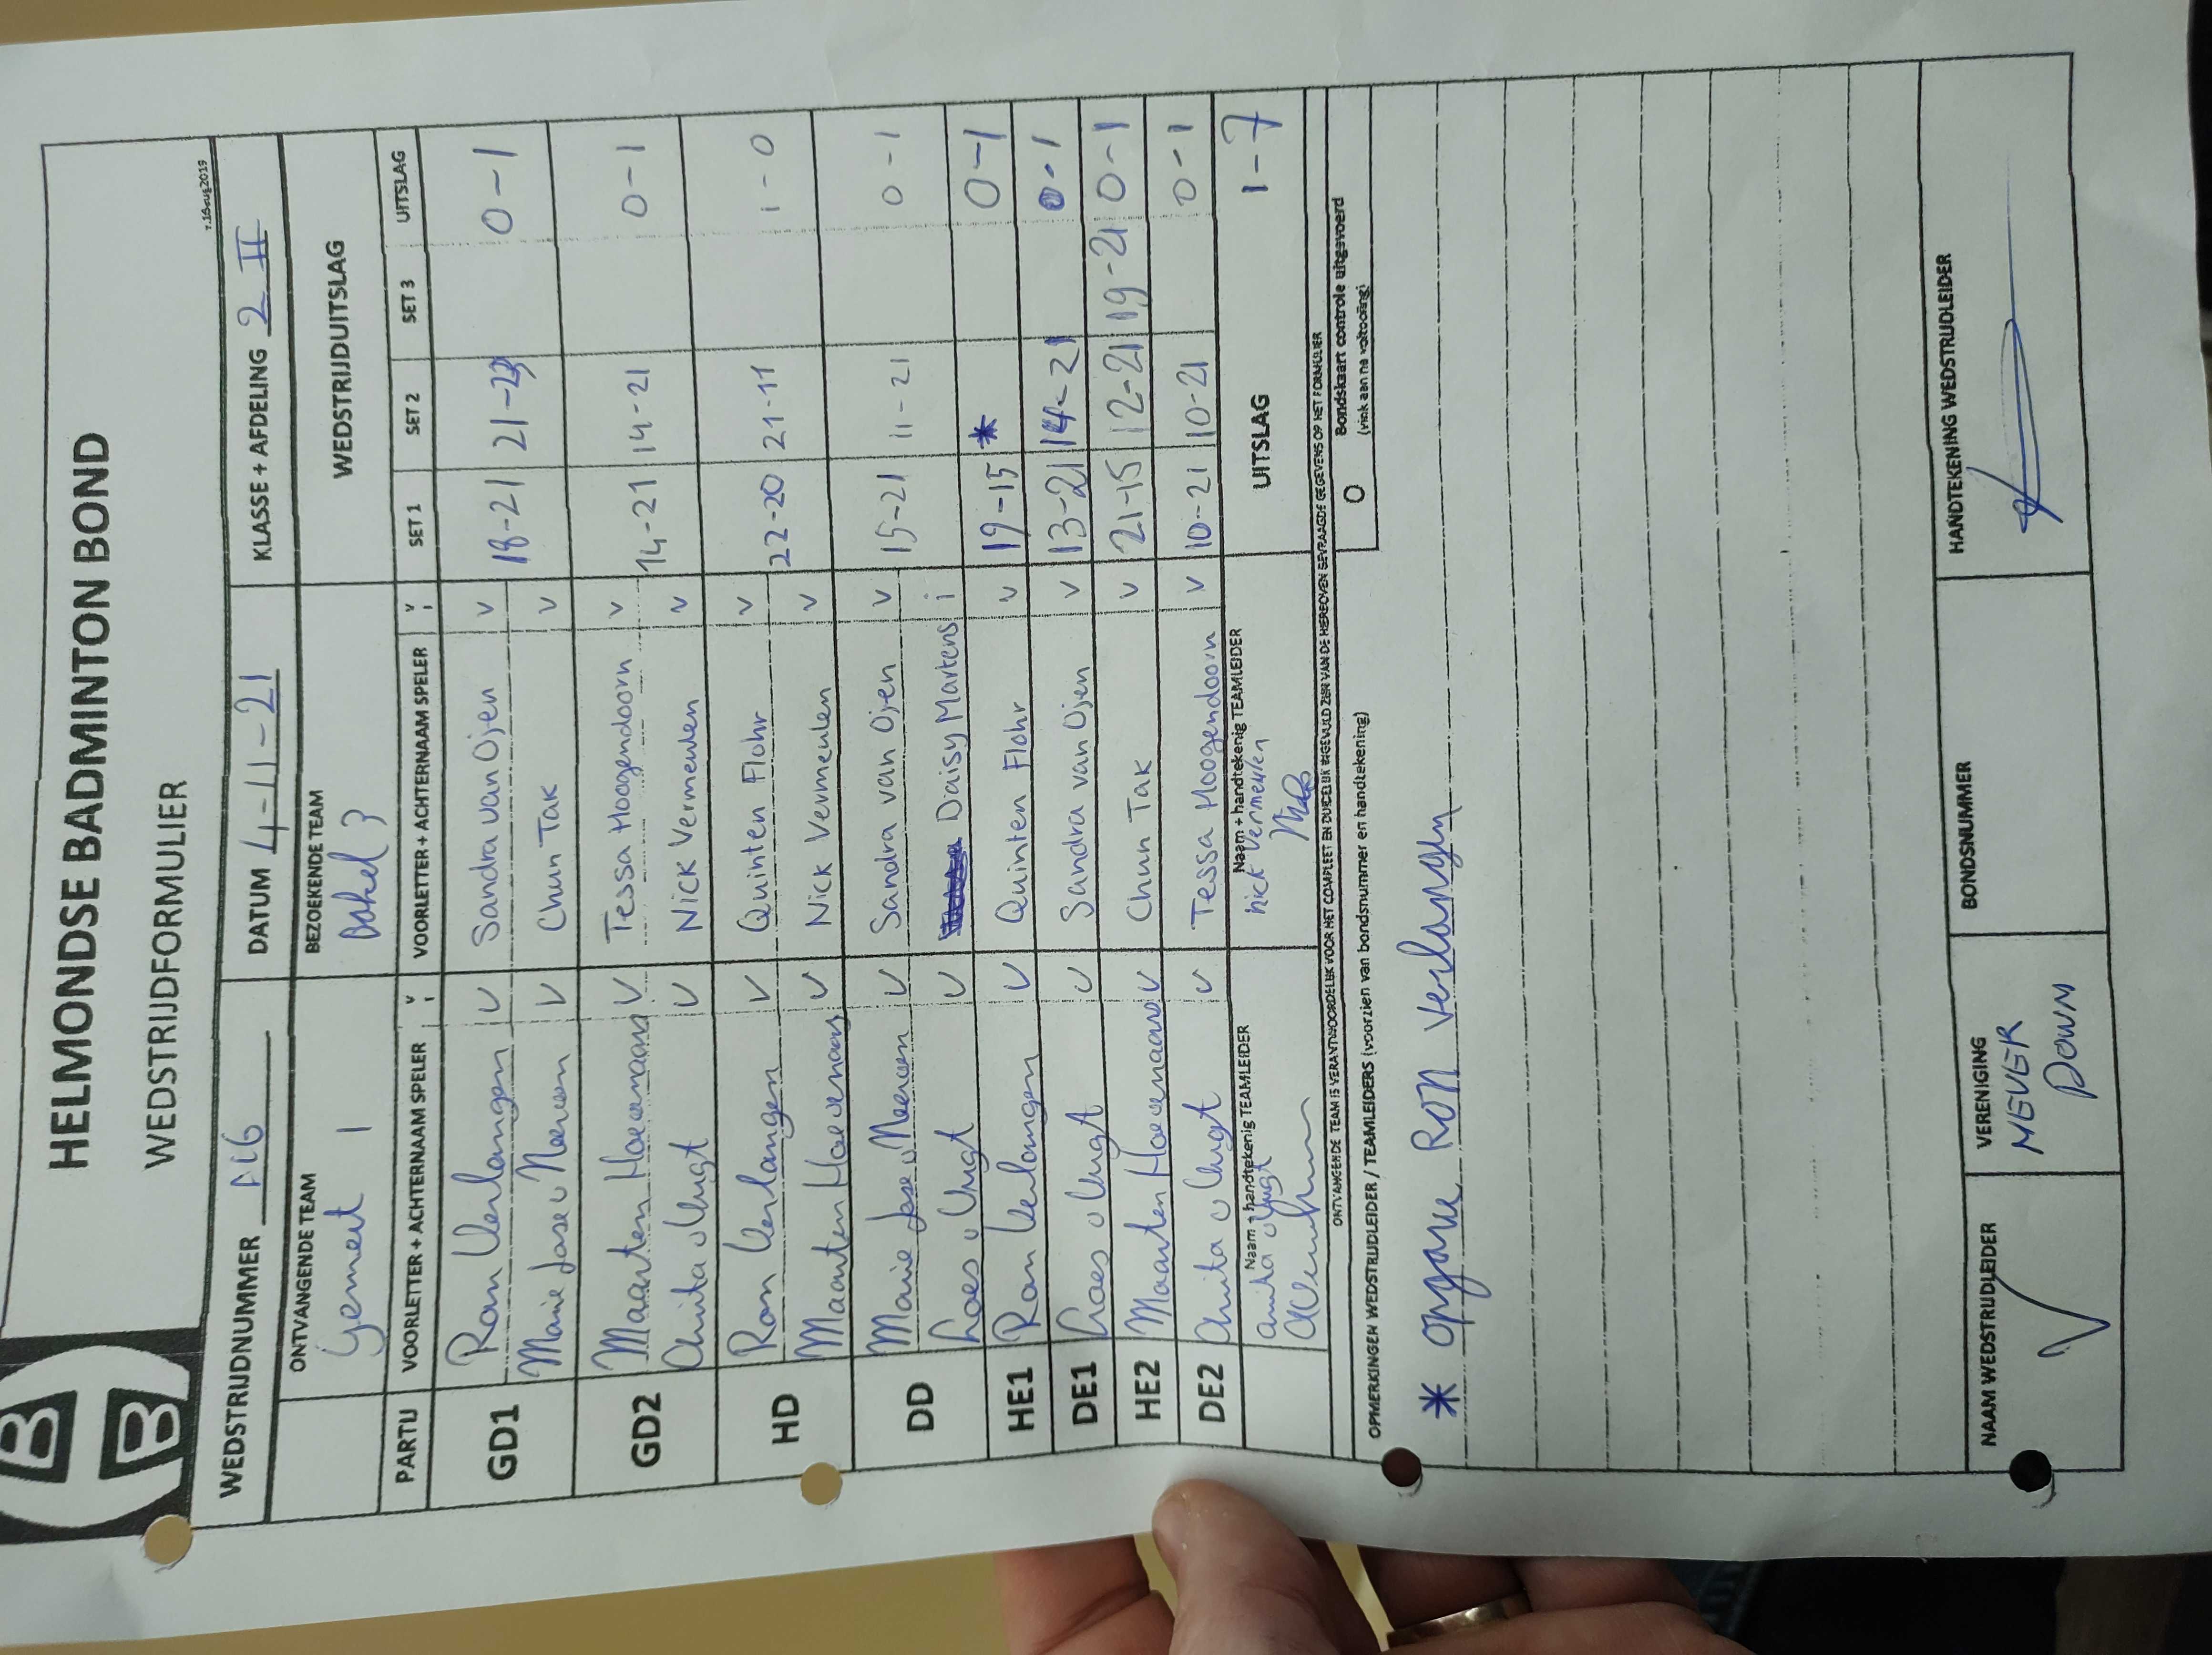 HELMONDSE BADMINTON BOND
WEDSTRIJDFORMULIER
v.16aug2019
WEDSTRIJDNUMMER DATUM 4-11-21 KLASSE + AFDELING 2 II
ONTVANGENDE TEAM BEZOEKENDE TEAM WEDSTRIJDUITSLAG
Gemert 1 Bakel 3
PARTIJ VOORLETTER + ACHTERNAAM SPELER v i VOORLETTER + ACHTERNAAM SPELER v i SET 1 SET 2 SET 3 UITSLAG
GD1 Ron Verlangen v Sandra van Ojen v 18-21 21-23 0-1
Marie Jose v Meeuwen v Chun Tak v
GD2 Maarten Hoevenaars v Tessa Hoogendoorn v 14-21 14-21 0-1
Anita v Vugt v Nick Vermeulen v
HD Ron Verlangen v Quinten Flohr v 22-20 21-11 1-0
Maarten Hoevenaars v Nick Vermeulen v
DD Marie Jose v Meeuwen v Sandra van Ojen v 15-21 11-21 0-1
Loes v Vugt v Daisy Martens i
HE1 Ron Verlangen v Quinten Flohr v 19-15 * 0-1
DE1 Loes v Vugt v Sandra van Ojen v 13-21 14-21 0-1
HE2 Maarten Hoevenaars v Chun Tak v 21-15 12-21 19-21 0-1
DE2 Anita v Vugt v Tessa Hoogendoorn v 10-21 10-21 0-1
Naam + handtekenig TEAMLEIDER Naam + handtekenig TEAMLEIDER UITSLAG 1-7
Anita v Vugt Nick Vermeulen
ONTVANGENDE TEAM IS VERANTWOORDELIJK VOOR HET COMPLEET EN DUIDELIJK INGEVULD ZIJN VAN DE HIERBOVEN GEVRAAGDE GEGEVENS OP HET FORMULIER
OPMERKINGEN WEDSTRIJDLEIDER / TEAMLEIDERS (voorzien van bondsnummer en handtekening)
O Bondskaart controle uitgevoerd
(vink aan na voltooiing)
* opgave Ron Verlangen
NAAM WEDSTRIJDLEIDER VERENIGING BONDSNUMMER HANDTEKENING WEDSTRIJDLEIDER
NEVER
DOWN